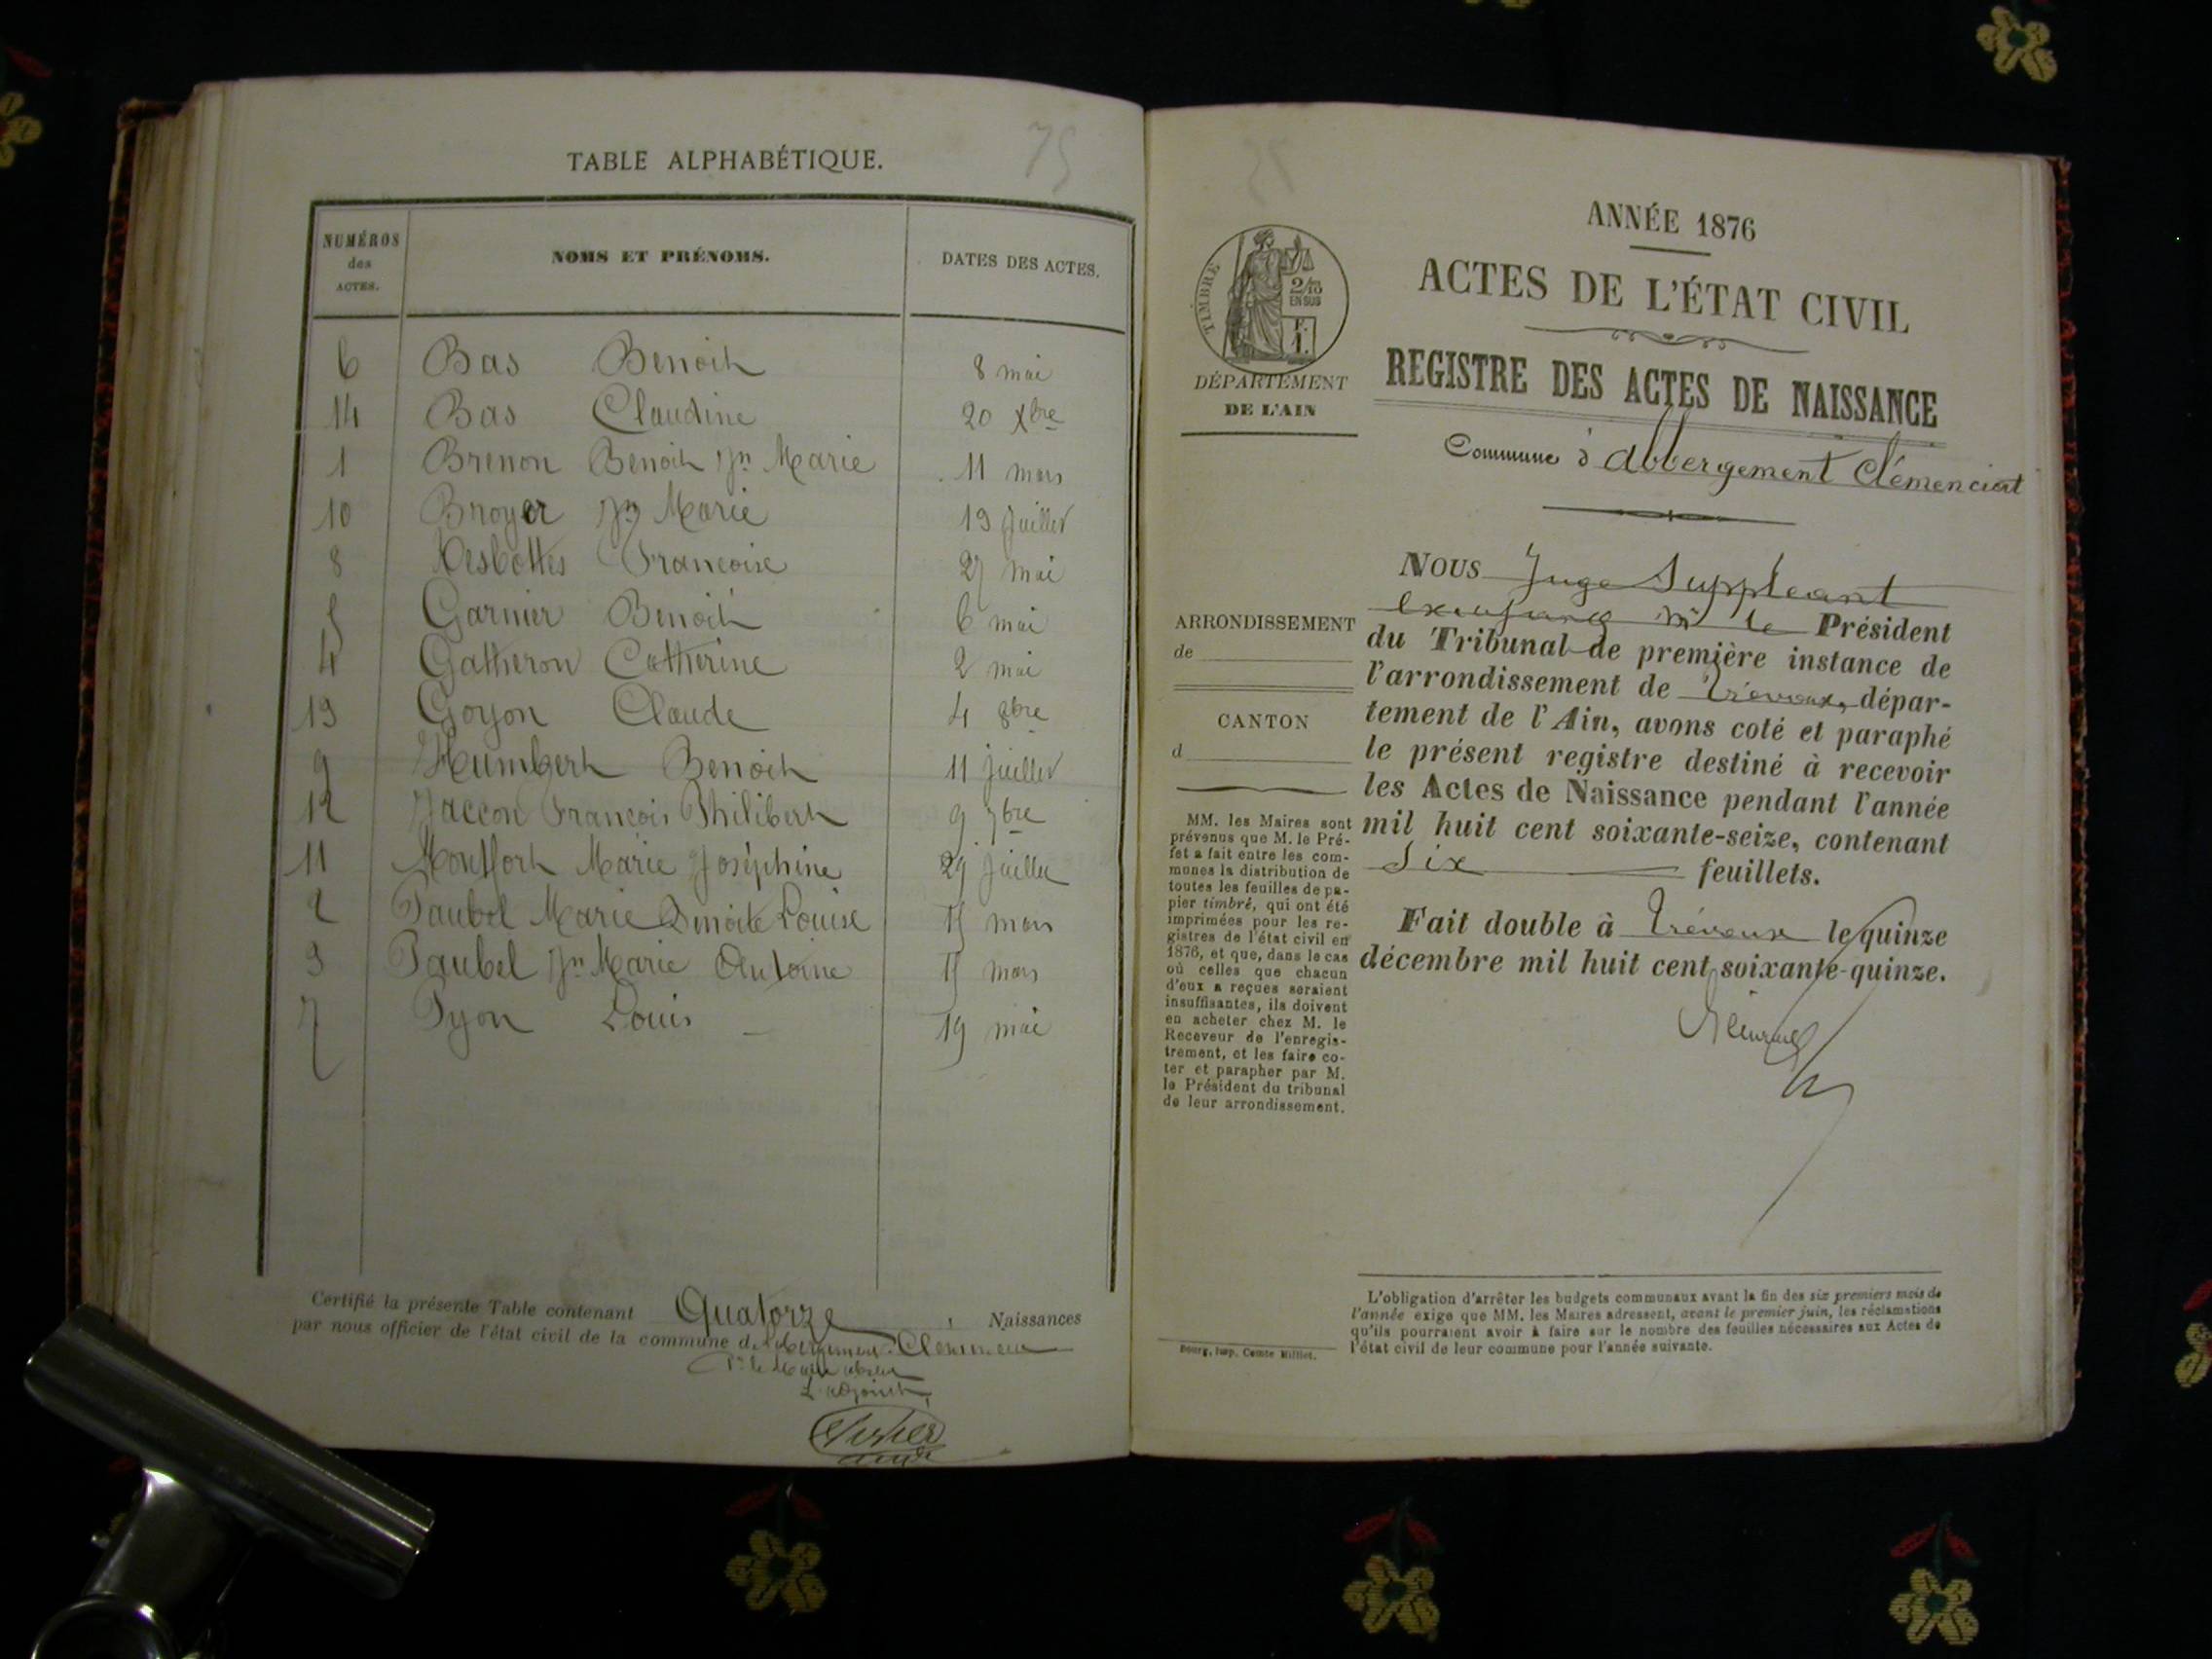 75
TABLE ALPHABÉTIQUE.
NUMÉROS des ACTES. NOMS ET PRÉNOMS. DATES DES ACTES.
6 Bas Benoit 8 mai
14 Bas Claudine 20 Xbre
1 Brenon Benoit Jn Marie 11 mars
10 Broyer Jn Marie 13 juillet
8 Desbottes Françoise 27 mai
5 Garnier Benoit 6 mai
4 Gatheron Catherine 2 mai
13 Goyon Claude 4 8bre
9 Humbert Benoit 11 juillet
12 Jaccon François Philibert 9 7bre
11 Montfort Marie Joséphine 29 juillet
2 Paubel Marie Benoite Louise 15 mars
3 Paubel Jn Marie Antoine 15 mars
7 Pyon Louis 19 mai
Certifié la présente Table contenant Quatorze Naissances
par nous officier de l'état civil de la commune de
Pr le Maire absent
L'adjoint
ANNÉE 1876
ACTES DE L'ÉTAT CIVIL
REGISTRE DES ACTES DE NAISSANCE
Commune d'Abbergement Clémenciat
TIMBRE
2/10
EN SUS
F.
1.
DÉPARTEMENT
DE L'AIN
ARRONDISSEMENT
de
CANTON
d
MM. les Maires sont
prévenus que M. le Pré-
fet a fait entre les com-
munes la distribution de
toutes les feuilles de pa-
pier timbré, qui ont été
imprimées pour les re-
gistres de l'état civil en
1876, et que, dans le cas
où celles que chacun
d'eux a reçues seraient
insuffisantes, ils doivent
en acheter chez M. le
Receveur de l'enregis-
trement, et les faire co-
ter et parapher par M.
le Président du tribunal
de leur arrondissement.
NOUS Juge Suppléant
le Président
du Tribunal de première instance de
l'arrondissement de Trévoux, dépar-
tement de l'Ain, avons coté et paraphé
le présent registre destiné à recevoir
les Actes de Naissance pendant l'année
mil huit cent soixante-seize, contenant
Six feuillets.
Fait double à Trévoux le quinze
décembre mil huit cent soixante-quinze.
Bourg, Imp. Comte Milliet.
L'obligation d'arrêter les budgets communaux avant la fin des six premiers mois de
l'année exige que MM. les Maires adressent, avant le premier juin, les réclamations
qu'ils pourraient avoir à faire sur le nombre des feuilles nécessaires aux Actes de
l'état civil de leur commune pour l'année suivante.